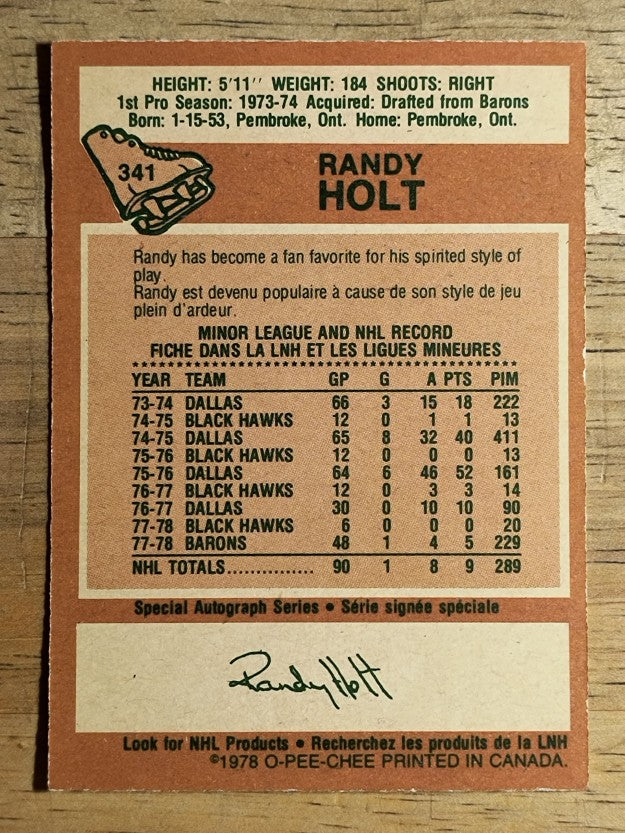 HEIGHT: 5'11'' WEIGHT: 184 SHOOTS: RIGHT
1st Pro Season: 1973-74 Acquired: Drafted from Barons
Born: 1-15-53, Pembroke, Ont. Home: Pembroke, Ont.
341
RANDY
HOLT
Randy has become a fan favorite for his spirited style of
play.
Randy est devenu populaire à cause de son style de jeu
plein d'ardeur.
MINOR LEAGUE AND NHL RECORD
FICHE DANS LA LNH ET LES LIGUES MINEURES
YEAR TEAM GP G A PTS PIM
73-74 DALLAS 66 3 15 18 222
74-75 BLACK HAWKS 12 0 1 1 13
74-75 DALLAS 65 8 32 40 411
75-76 BLACK HAWKS 12 0 0 0 13
75-76 DALLAS 64 6 46 52 161
76-77 BLACK HAWKS 12 0 3 3 14
76-77 DALLAS 30 0 10 10 90
77-78 BLACK HAWKS 6 0 0 0 20
77-78 BARONS 48 1 4 5 229
NHL TOTALS............... 90 1 8 9 289
Special Autograph Series • Série signée spéciale
Randy Holt
Look for NHL Products • Recherchez les produits de la LNH
©1978 O-PEE-CHEE PRINTED IN CANADA.